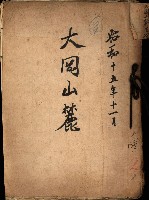 昭和十五年十一月
大岡山麓